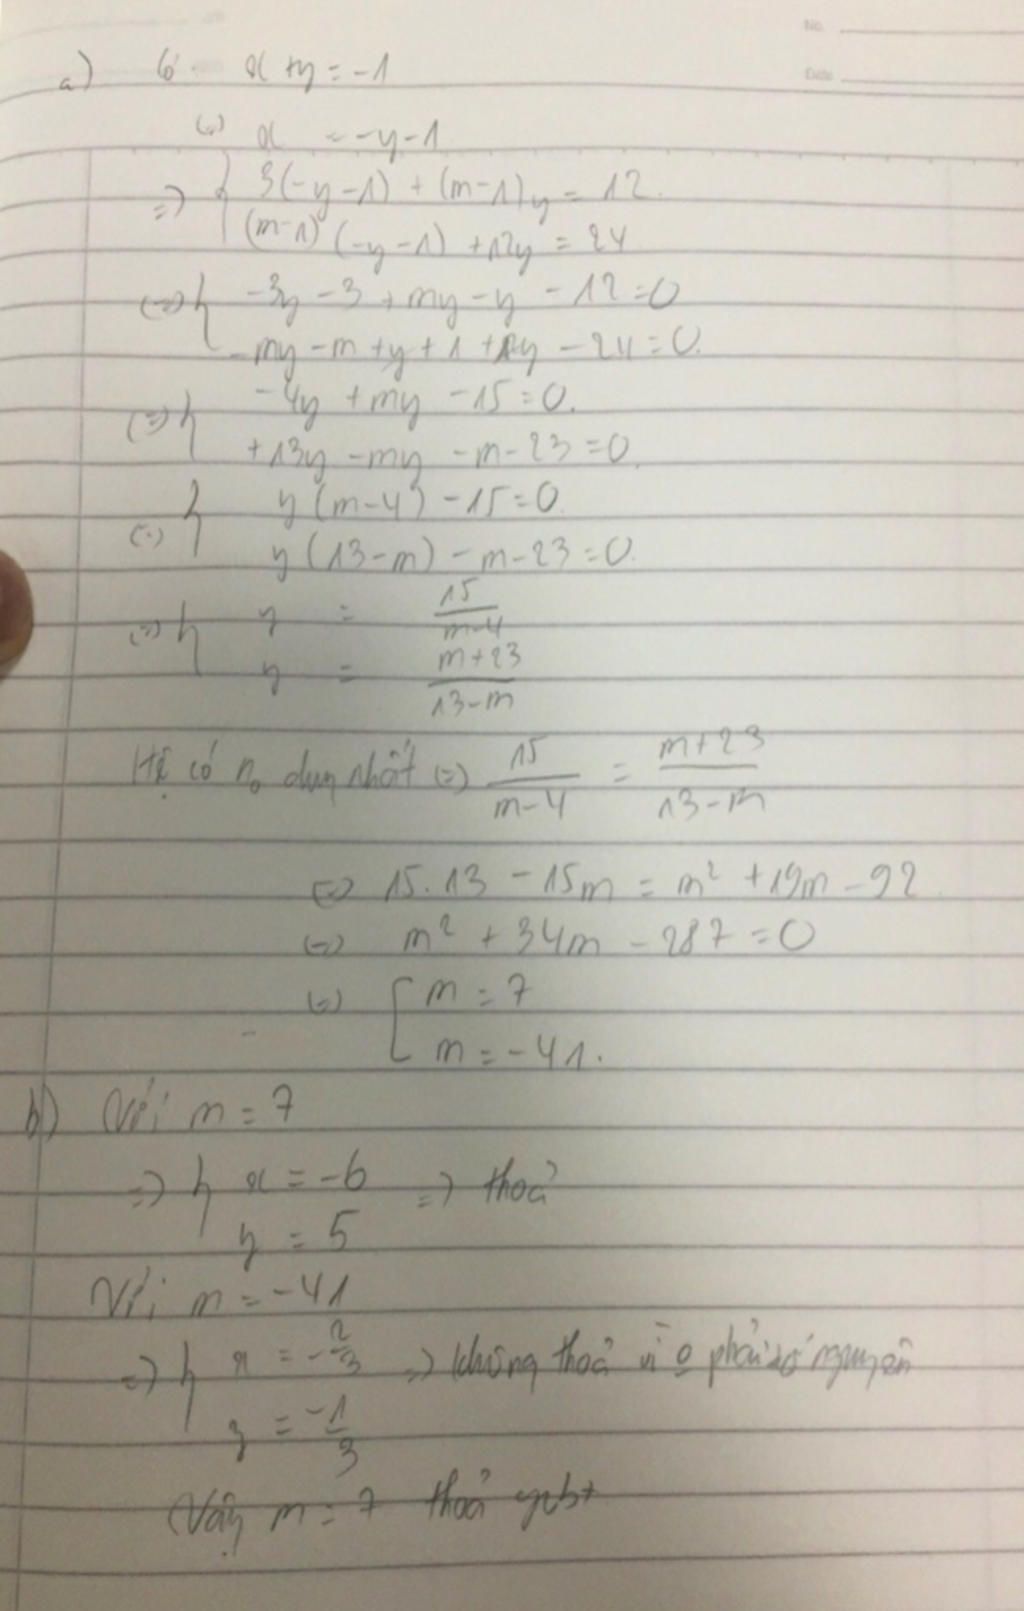 No.
Date
a) Có x + y = -1
(=) x = -y - 1
=> { 3(-y-1) + (m-1)y = 12
(m-1)(-y-1) + 12y = 24
(=) { -3y - 3 + my - y - 12 = 0
-my - m + y + 1 + 12y - 24 = 0.
(=) { -4y + my - 15 = 0.
+13y - my - m - 23 = 0
(=) { y(m-4) - 15 = 0.
y(13-m) - m - 23 = 0.
(=) { y = 15/(m-4)
y = (m+23)/(13-m)
Hệ có no duy nhất (=) 15/(m-4) = (m+23)/(13-m)
(=) 15.13 - 15m = m² + 19m - 92
(=) m² + 34m - 287 = 0
(=) [ m = 7
m = -41.
b) Với m = 7
=> { x = -6 => thoả
y = 5
Với m = -41
=> { x = -2/3 => không thoả vì o phải số nguyên
y = -1/3
Vậy m = 7 thoả ycbt